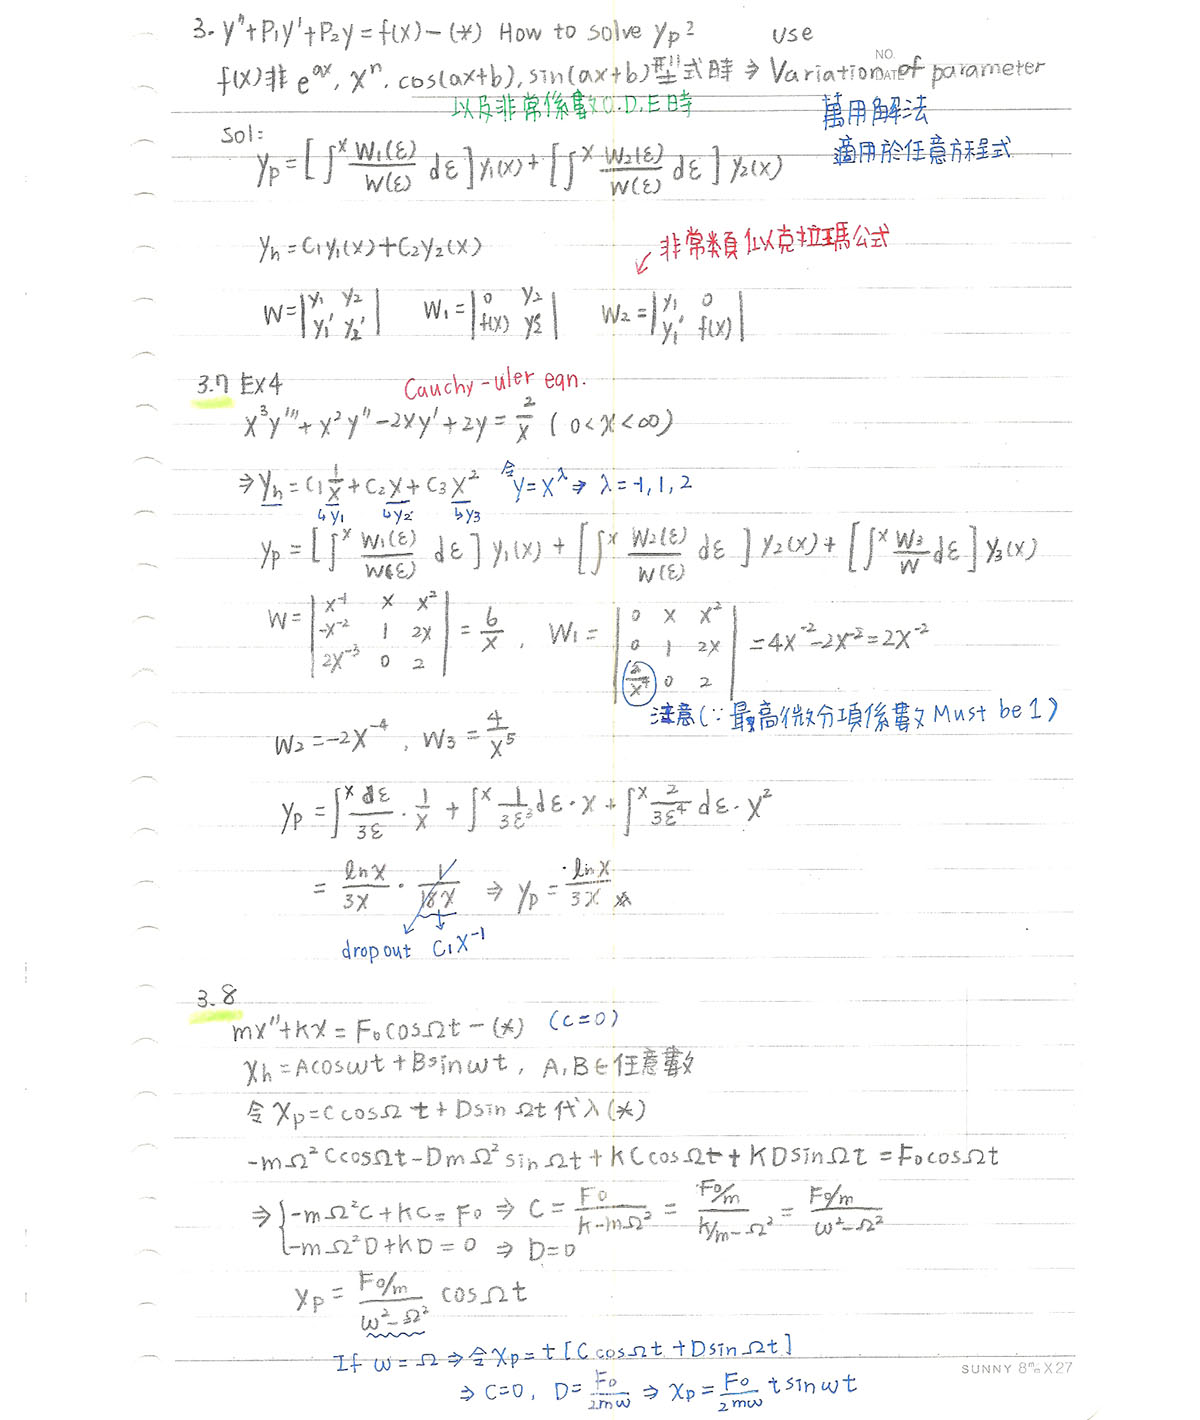 3. y''+P₁y'+P₂y=f(x)-(*) How to solve yp? use
NO.
DATE
f(x)非 e^ax, x^n, cos(ax+b), sin(ax+b)型式時 ⇒ Variation of parameter
以及非常係數O.D.E時 萬用解法
適用於任意方程式
sol:
yp = [∫^x W₁(ε)/W(ε) dε] y₁(x) + [∫^x W₂(ε)/W(ε) dε] y₂(x)
yh = C₁y₁(x)+C₂y₂(x)
非常類似克拉瑪公式
W = |y₁ y₂; y₁' y₂'| W₁ = |0 y₂; f(x) y₂'| W₂ = |y₁ 0; y₁' f(x)|
3.7 Ex4 Cauchy-uler eqn.
x³y'''+x²y''-2xy'+2y = 2/x (0<x<∞)
⇒ yh = C₁ 1/x + C₂x + C₃x² 令 y=x^λ ⇒ λ=-1,1,2
↳y₁ ↳y₂ ↳y₃
yp = [∫^x W₁(ε)/W(ε) dε] y₁(x) + [∫^x W₂(ε)/W(ε) dε] y₂(x) + [∫^x W₃/W dε] y₃(x)
W = |x^-1 x x²; -x^-2 1 2x; 2x^-3 0 2| = 6/x, W₁ = |0 x x²; 0 1 2x; 2/x⁴ 0 2| = 4x^-2-2x^-2=2x^-2
注意(∵最高微分項係數Must be 1)
W₂ = -2x^-4, W₃ = 4/x⁵
yp = ∫^x dε/3ε · 1/x + ∫^x 1/3ε³ dε · x + ∫^x 2/3ε⁴ dε · x²
= lnx/3x · 1/18x ⇒ yp = lnx/3x
drop out C₁x^-1
3.8
mx''+kx = F₀cosΩt -(*) (c=0)
xh = Acosωt + Bsinωt, A,B∈任意數
令 xp = CcosΩt + DsinΩt 代入(*)
-mΩ²CcosΩt - DmΩ²sinΩt + kCcosΩt + KDsinΩt = F₀cosΩt
⇒ { -mΩ²C + kC = F₀ ⇒ C = F₀/(k-mΩ²) = (F₀/m)/(k/m-Ω²) = (F₀/m)/(ω²-Ω²)
-mΩ²D + kD = 0 ⇒ D=0
xp = (F₀/m)/(ω²-Ω²) cosΩt
If ω=Ω ⇒ 令xp = t[CcosΩt + DsinΩt]
SUNNY 8m/m X 27
⇒ C=0, D = F₀/2mω ⇒ xp = F₀/2mω t sinωt